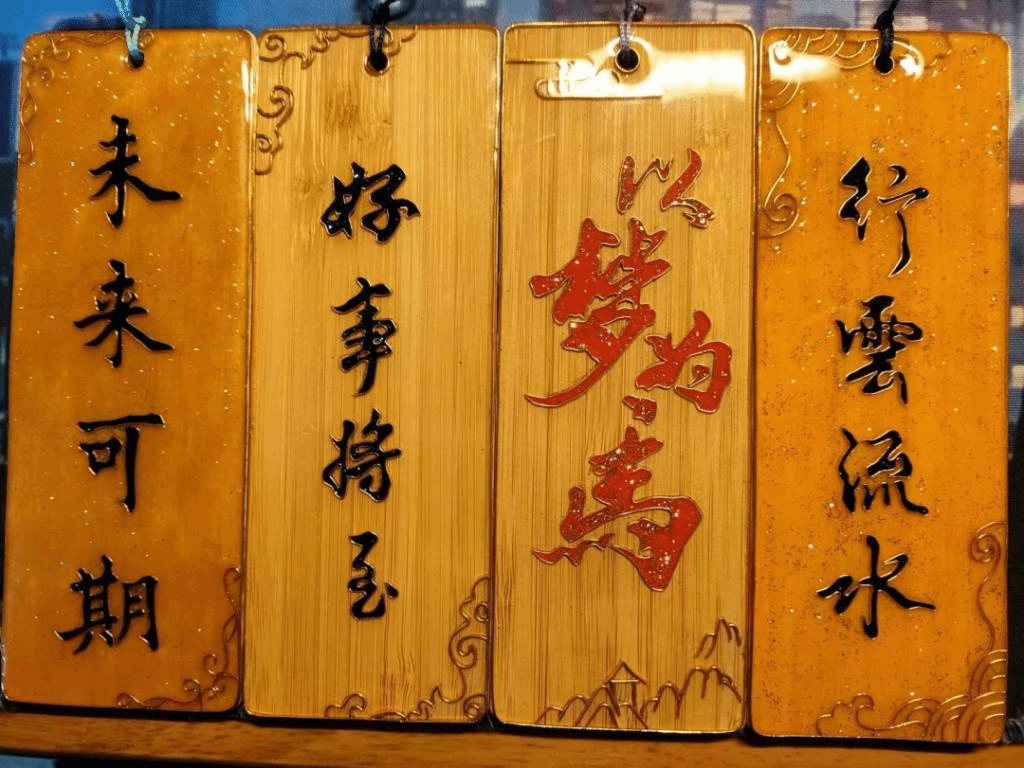 未来可期
好事将至
以梦为马
行雲流水